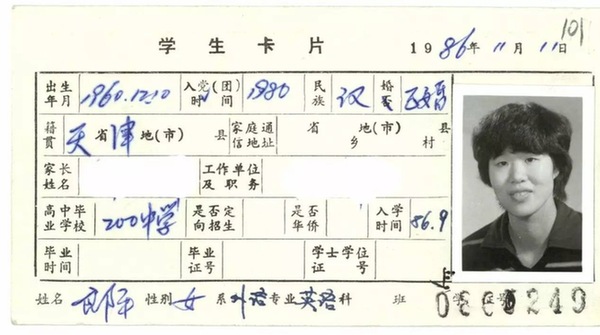 101
学生卡片 1986年11月11日
出生年月 1960.12.10 入党(团)时间 1980 民族 汉 婚否 已婚
籍贯 天 省 津 地(市) 县 家庭通信地址 省 地(市) 县 乡 村
家长姓名 工作单位及职务
高中毕业学校 200中学 是否定向招生 是否华侨 入学时间 86.9
毕业时间 毕业证号 学士学位证号
姓名 郎平 性别 女 系 外语 专业 英语 科 班 学 证号